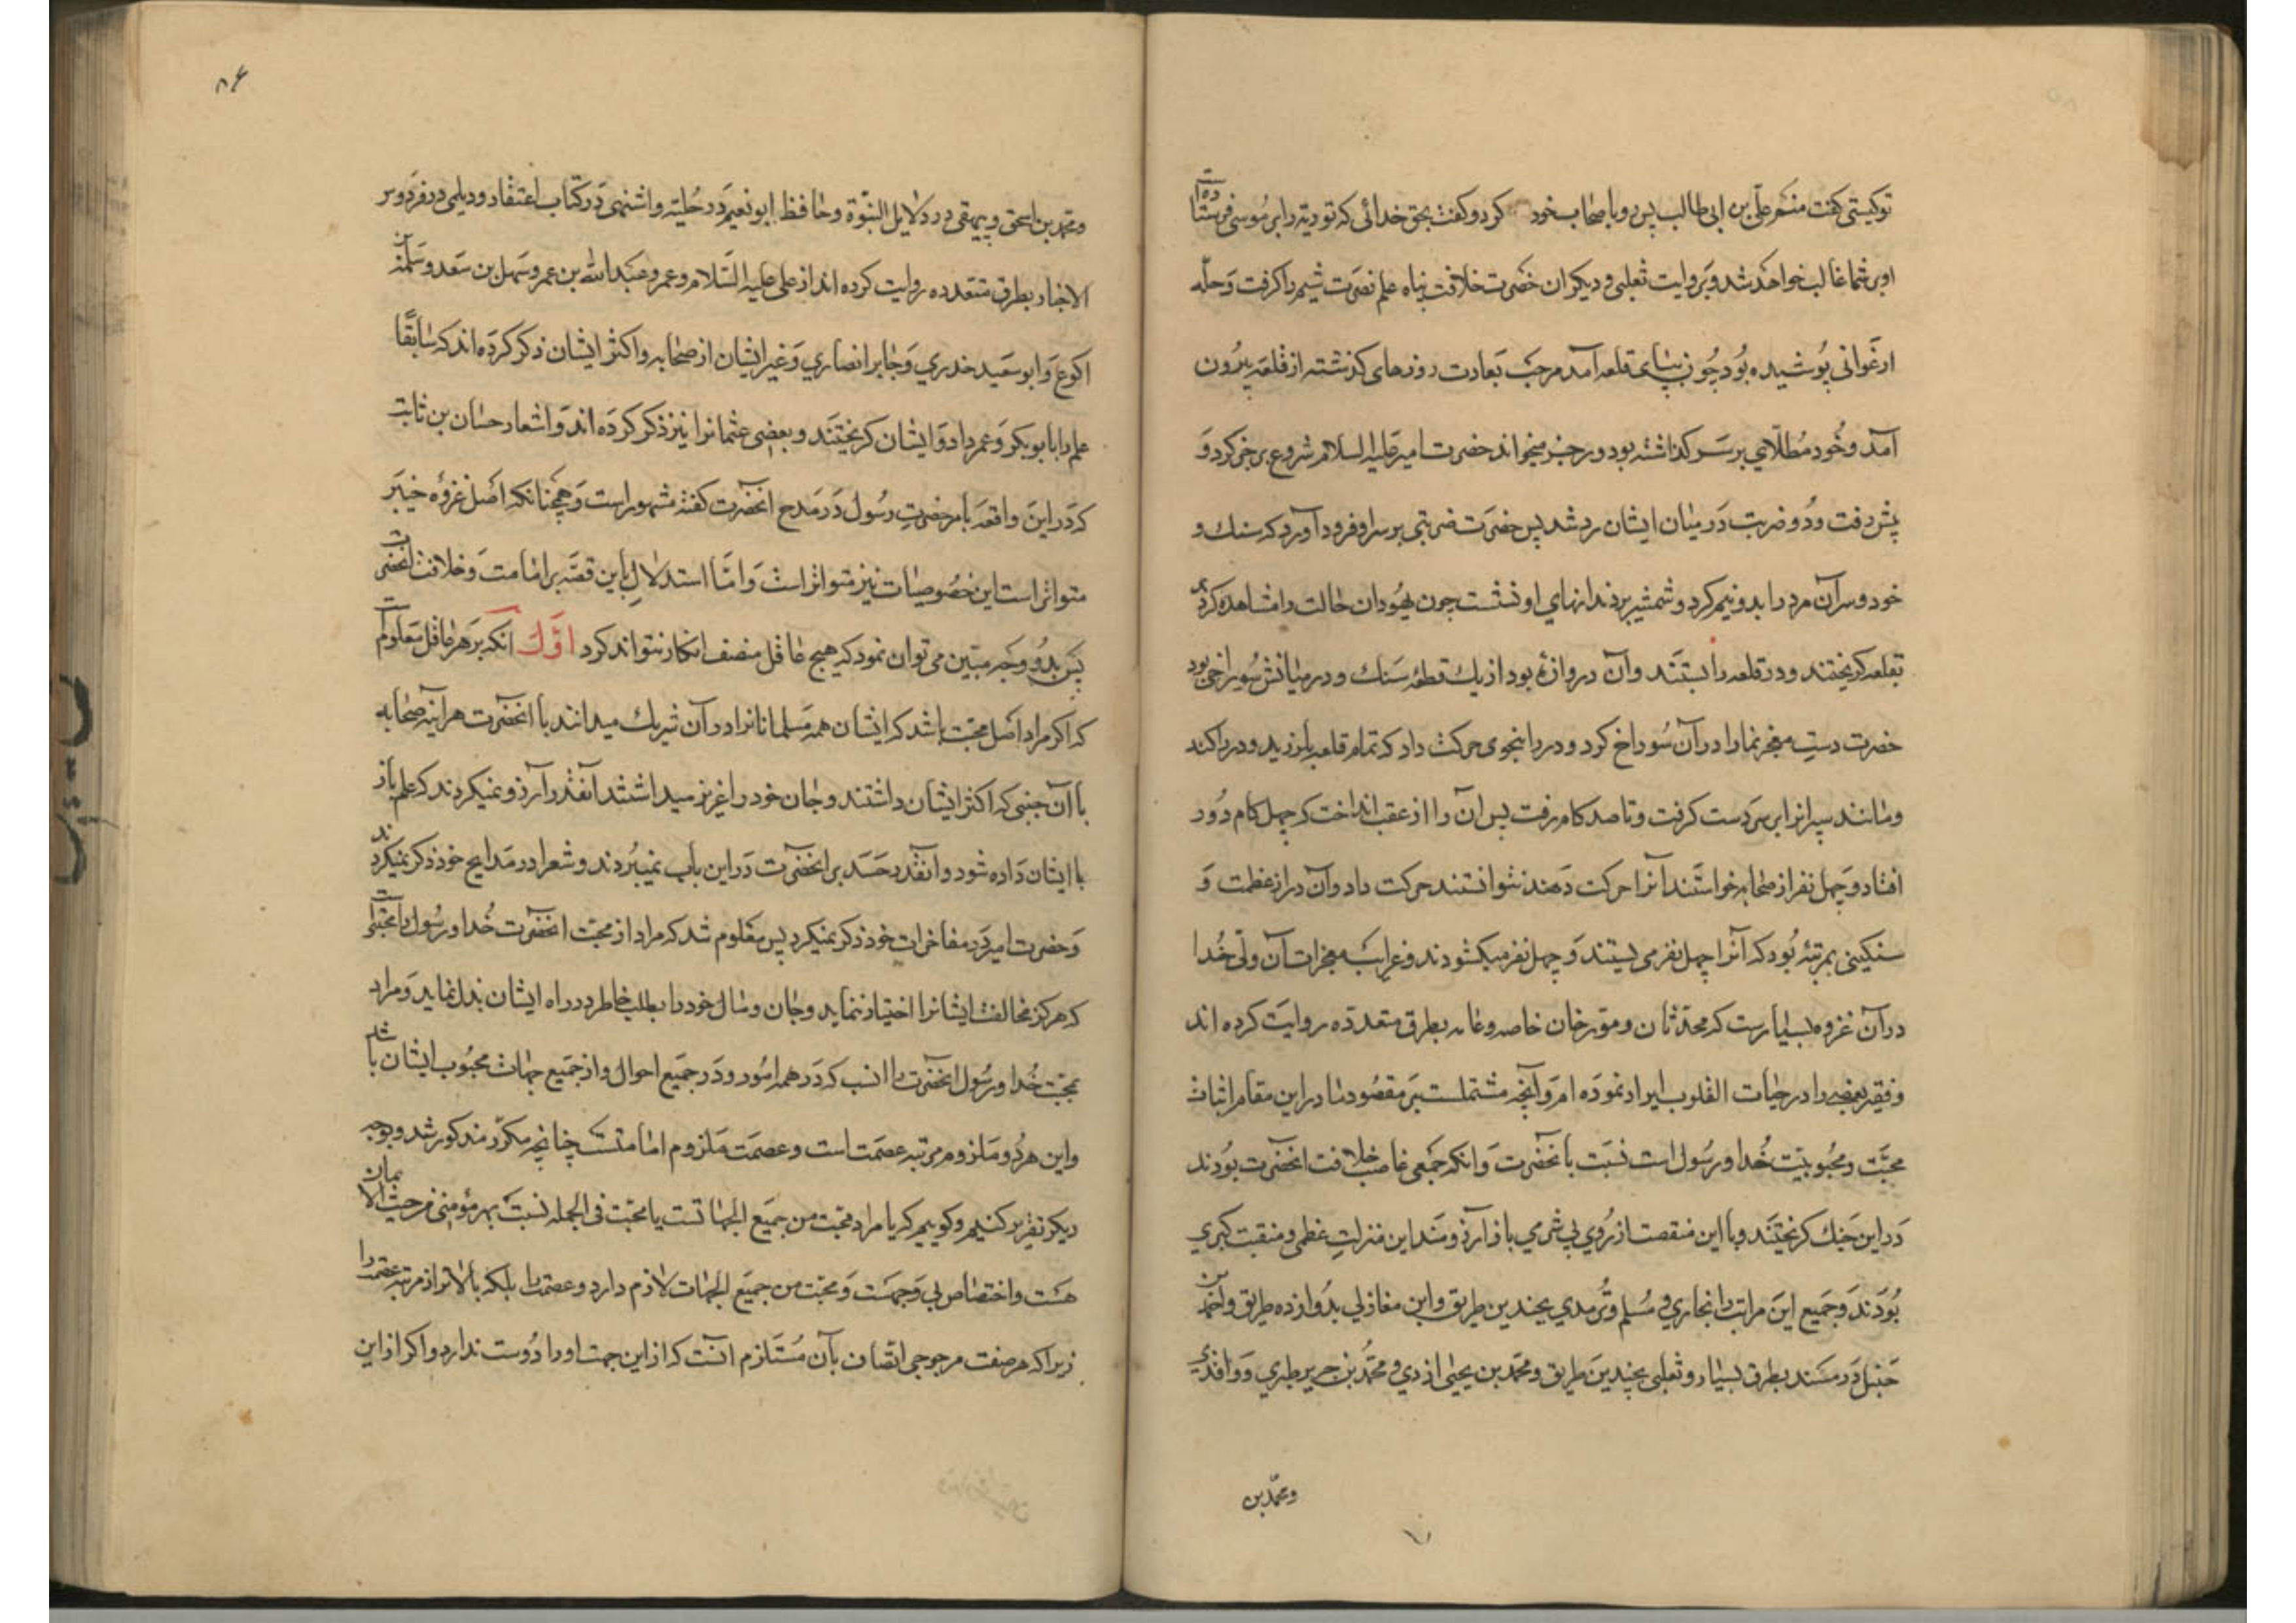 توکیستی کفت منم علی بن ابی طالب پس رو باصحاب خود کرد و کفت بحق خدائی که توریة را بر موسی فرستاده است
او بر شما غالب خواهد شد و بروایت ثعلبی و دیکران حضرت خلافت پناه علم نصرت شیم را کرفت و حله
ارغوانی پوشیده بود چون بپای قلعه آمد مرحب بعادت روزهای کذشته از قلعه بیرون
آمد و خود مطلائی بر سر کذاشته بود و رجز میخواند حضرت امیر علیه السلام شروع برجز کرد و
پیش رفت و دو ضربت در میان ایشان رد شد پس حضرت ضربتی بر سر او فرود آورد که سنک و
خود و سر آن مرد را بدو نیم کرد و شمشیر بر دندانهای او نشست چون یهودان حالت را مشاهده کردند
بقلعه کریختند و در قلعه را بستند و آن دروازه بود از یک قطعه سنک و در میانش سوراخی بود
حضرت دست معجز نما را در آن سوراخ کرد و در را بنحوی حرکت داد که تمام قلعه بلرزید و در را کند
و مانند سپر انرا بر سر دست کرفت و تا صد کام رفت پس ان را از عقب انداخت که چهل کام دور
افتاد و چهل نفر از صحابه خواستند آنرا حرکت دهند نتوانستند حرکت داد و آن در از عظمت و
سنکینی بمرتبهٔ بود که آنرا چهل نفر می بستند و چهل نفر میکشودند و غرایب معجزات آن ولی خدا
در آن غزوه بسیارست که محدثان و مورخان خاصه و عامه بطرق متعدده روایت کرده اند
و فقیر بعضی را در حیات القلوب ایراد نموده ام و آنچه مشتملست بر مقصود ما در این مقام اثبات
محبت و محبوبیت خدا و رسول است نسبت بآنحضرت و انکه جمعی غاصب خلافت انحضرت بودند
در این جنک کریختند و با این منقصت از روی بی شرمی باز آرزومند این منزلت عظمی و منقبت کبری
بودند و جمیع این مراتب را بخاری و مسلم و ترمدی بچندین طریق و ابن مغازلی بدوازده طریق و احمد بن
حنبل در مسند بطرق بسیار و ثعلبی بچندین طریق و محمد بن یحیی ازدی و محمد بن جریر طبری و واقدی
و محمد بن
۸۶
و محمد بن اسحق و بیهقی در دلایل النبوة و حافظ ابو نعیم در حلیة و اشنهی در کتاب اعتقاد و دیلمی در فردوس
الاخبار بطرق متعدده روایت کرده اند از علی علیه السلام و عمر و عبد الله بن عمر و سهل بن سعد و سلمة بن
اکوع و ابو سعید خدری و جابر انصاری و غیر ایشان از صحابه و اکثر ایشان ذکر کرده اند که سابقًا
علم را بابو بکر و عمر داد و ایشان کریختند و بعضی عثمانرا نیز ذکر کرده اند و اشعار حسان بن ثابت
که در این واقعه بامر حضرت رسول در مدح انحضرت کفته مشهور است و همچنانکه اصل غزوه خیبر
متواتر است این خصوصیات نیز متواتر است و امّا استدلال باین قصه بر امامت و خلافت انحضرت
پس بدو وجه مبتین می توان نمود که هیچ عاقل منصف انکار نتواند کرد اوّل انکه بر هر عاقل معلومست
که اکر مراد اصل محبت باشد که ایشان همه مسلمانانرا در آن شریک میدانند با انحضرت هر اینه صحابه
با آن جبنی که اکثر ایشان داشتند و جان خود را عزیز میداشتند آنقدر آرزو نمیکردند که علم باز
با ایشان داده شود و انقدر حسد بر انحضرت در این باب نمیبردند و شعرا در مدایح خود ذکر نمیکردند
و حضرت امیر در مفاخرات خود ذکر نمیکرد پس معلوم شد که مراد از محبت انحضرت خدا و رسول را محبتی است
که هرکز مخالفت ایشانرا اختیار ننماید و جان و مال خود را بطلب خاطر در راه ایشان بذل نماید و مراد
بمحبت خدا و رسول انحضرت را انست که در همه امور و در جمیع احوال و از جمیع جهات محبوب ایشان باشد
و این هر دو ملزوم مرتبه عصمت است و عصمت ملزوم امامتست چنانچه مکرر مذکور شد و بوجه
دیکر تقریر کنیم و کوییم که یا مراد محبت من جمیع الجهاتست یا محبت فی الجمله نسبت بهر مؤمنی من حیث الایمان
هست و اختصاص بی وجهست و محبت من جمیع الجهات لازم دارد عصمت را بلکه بالاتر از مرتبه عصمت را
زیرا که هر صفت مرجوحی اتصاف بآن مستلزم انست که از این جهت او را دوست ندارد و اکر از این